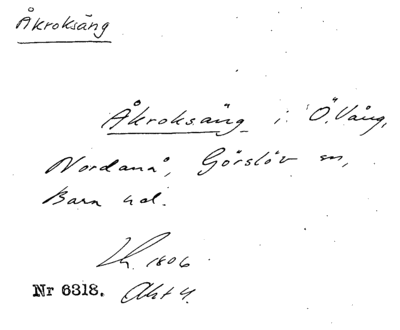 Åkroksäng
Åkroksäng i Ö. Vång,
Nordanå, Görslöv sn,
Bara hd.
Lh. 1806
Nr 6318. Akt 4.